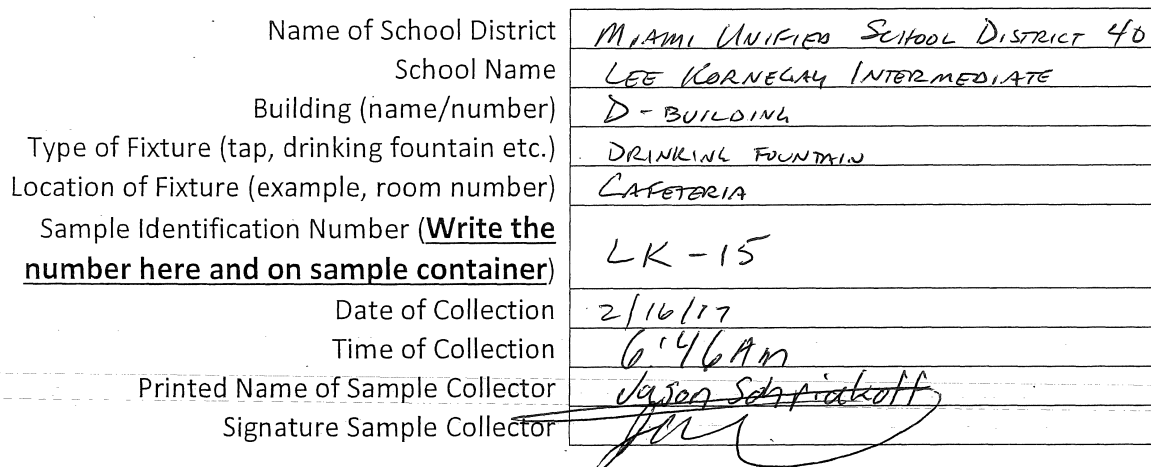 Name of School District MIAMI UNIFIED SCHOOL DISTRICT 40
School Name LEE KORNEGAY INTERMEDIATE
Building (name/number) D - BUILDING
Type of Fixture (tap, drinking fountain etc.) DRINKING FOUNTAIN
Location of Fixture (example, room number) CAFETERIA
Sample Identification Number (Write the
number here and on sample container) LK - 15
Date of Collection 2/16/17
Time of Collection 6:46 Am
Printed Name of Sample Collector Jason
Signature Sample Collector